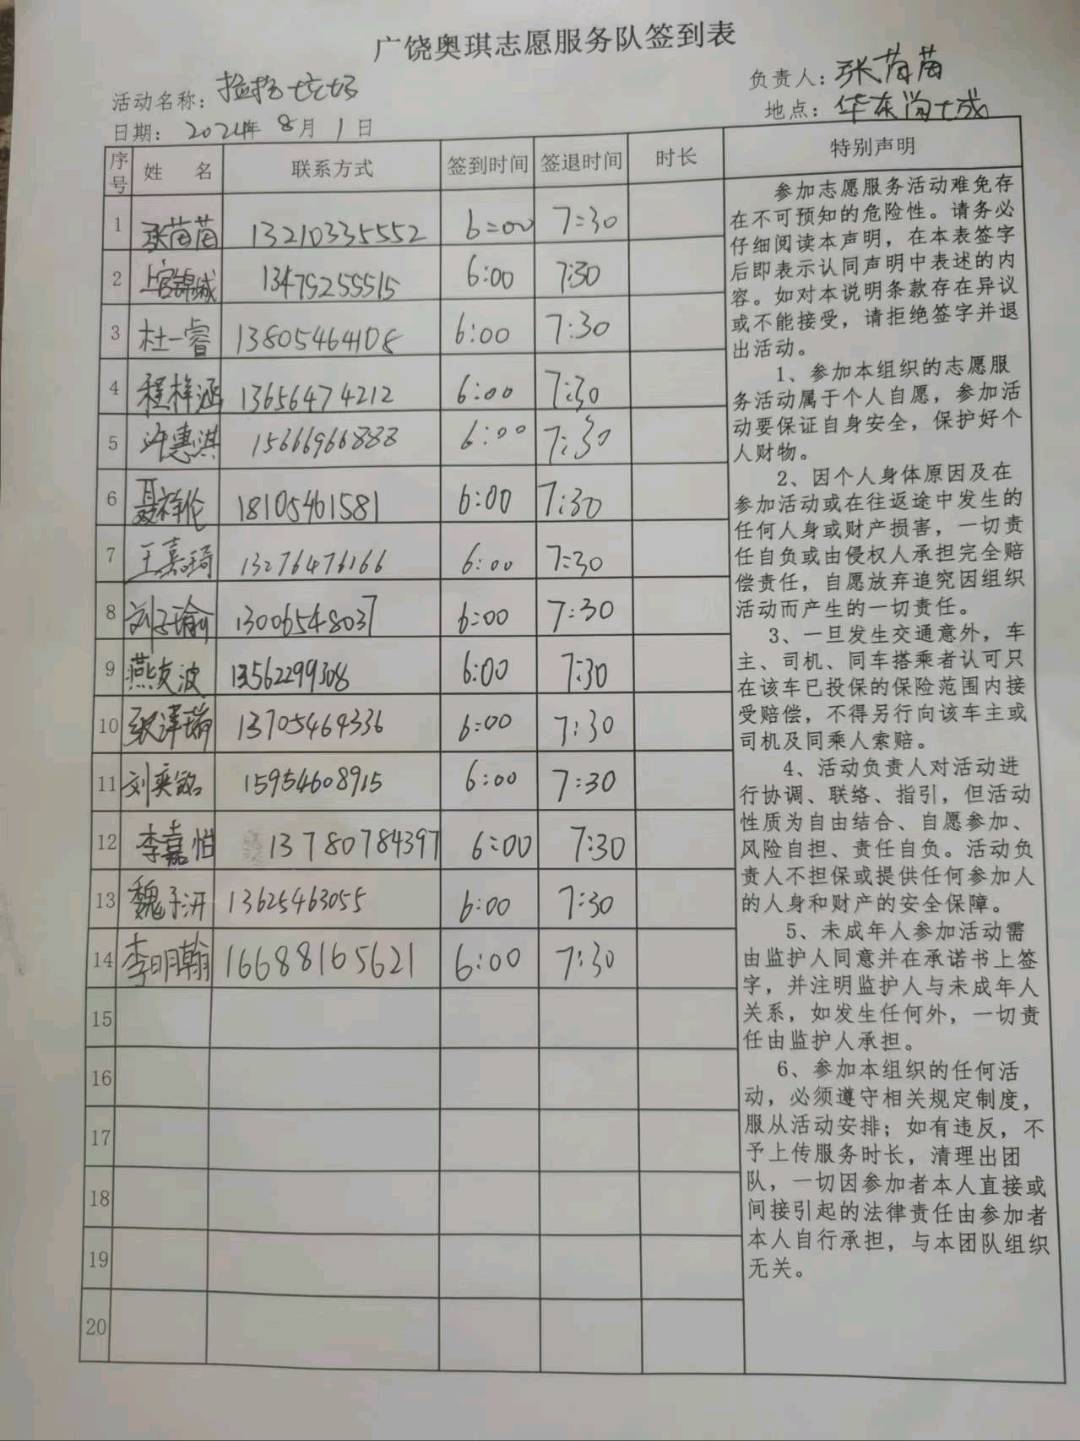 广饶奥琪志愿服务队签到表
活动名称：捡捡垃圾
负责人：张苗苗
日期：2024年8月1日
地点：华东尚城
序号 姓名 联系方式 签到时间 签退时间 时长 特别声明
1 张苗苗 13210335552 6:00 7:30
2 上官锦城 13475255515 6:00 7:30
3 杜一睿 13805464108 6:00 7:30
4 程梓涵 13656474212 6:00 7:30
5 许惠淇 15666966888 6:00 7:30
6 聂祥伦 18105461581 6:00 7:30
7 王嘉琦 13276476166 6:00 7:30
8 刘子瑜 13006548037 6:00 7:30
9 燕友波 13562299308 6:00 7:30
10 张泽瑞 13705464336 6:00 7:30
11 刘奕铭 15954608915 6:00 7:30
12 李嘉怡 13780784397 6:00 7:30
13 魏子汧 13625463055 6:00 7:30
14 李明翰 16688165621 6:00 7:30
15
16
17
18
19
20
参加志愿服务活动难免存
在不可预知的危险性。请务必
仔细阅读本声明，在本表签字
后即表示认同声明中表述的内
容。如对本说明条款存在异议
或不能接受，请拒绝签字并退
出活动。
1、参加本组织的志愿服
务活动属于个人自愿，参加活
动要保证自身安全，保护好个
人财物。
2、因个人身体原因及在
参加活动或在往返途中发生的
任何人身或财产损害，一切责
任自负或由侵权人承担完全赔
偿责任，自愿放弃追究因组织
活动而产生的一切责任。
3、一旦发生交通意外，车
主、司机、同车搭乘者认可只
在该车已投保的保险范围内接
受赔偿，不得另行向该车主或
司机及同乘人索赔。
4、活动负责人对活动进
行协调、联络、指引，但活动
性质为自由结合、自愿参加、
风险自担、责任自负。活动负
责人不担保或提供任何参加人
的人身和财产的安全保障。
5、未成年人参加活动需
由监护人同意并在承诺书上签
字，并注明监护人与未成年人
关系，如发生任何外，一切责
任由监护人承担。
6、参加本组织的任何活
动，必须遵守相关规定制度，
服从活动安排；如有违反，不
予上传服务时长，清理出团
队，一切因参加者本人直接或
间接引起的法律责任由参加者
本人自行承担，与本团队组织
无关。